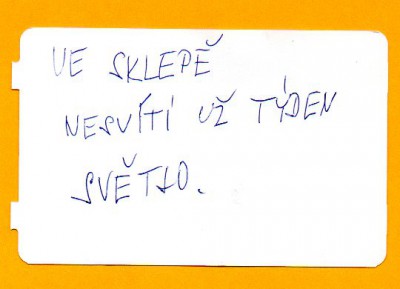 VE SKLEPĚ
NESVÍTÍ UŽ TÝDEN
SVĚTLO.